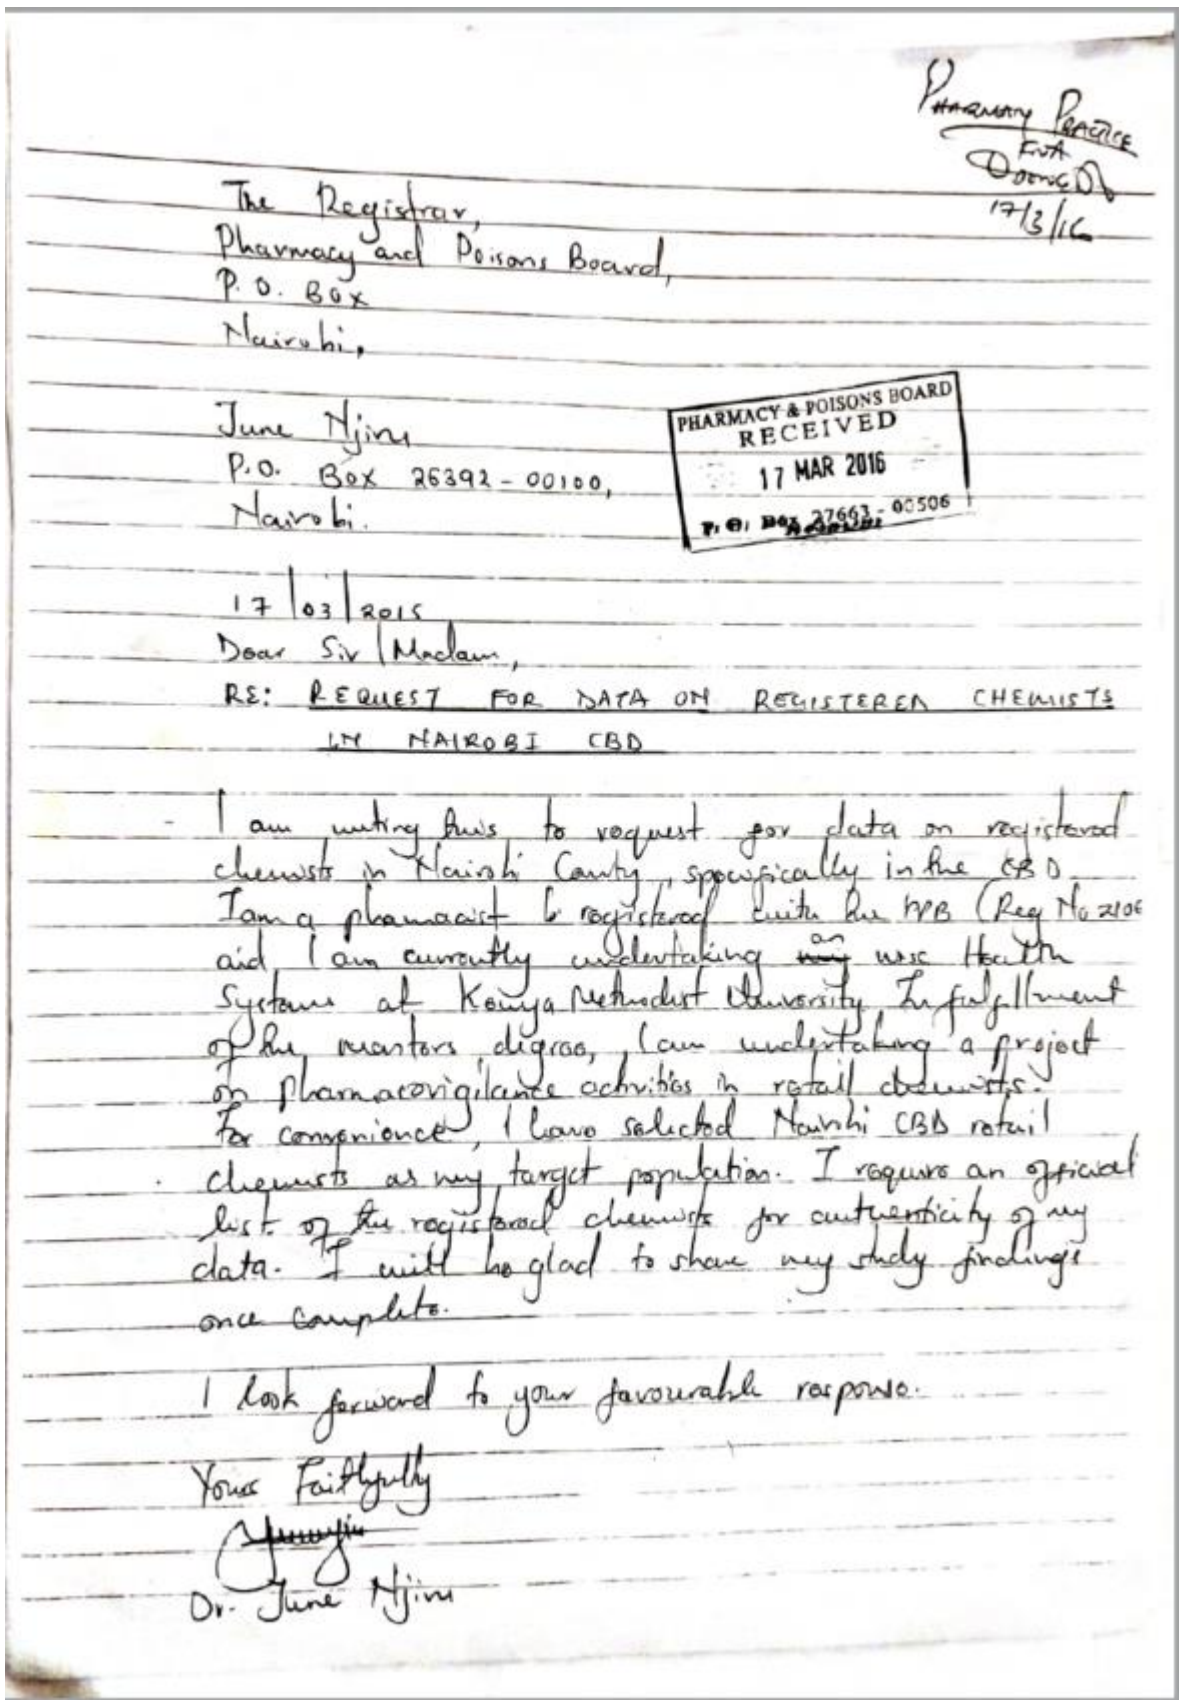 PHARMACY PRACTICE
FNA
17/3/16
The Registrar,
Pharmacy and Poisons Board,
P.O. Box
Nairobi,
June Njiru
P.O. Box 26392-00100,
Nairobi.
PHARMACY & POISONS BOARD
RECEIVED
17 MAR 2016
P. O. Box 27663-00506
NAIROBI
17/03/2015
Dear Sir/Madam,
RE: REQUEST FOR DATA ON REGISTERED CHEMISTS
IN NAIROBI CBD
I am writing this to request for data on registered
chemists in Nairobi County, specifically in the CBD
I am a pharmacist registered with the PPB (Reg No 2106
and I am currently undertaking an MSC Health
Systems at Kenya Methodist University. In fulfillment
of the masters degree, I am undertaking a project
on pharmacovigilance activities in retail chemists.
For convenience, I have selected Nairobi CBD retail
chemists as my target population. I require an official
list of the registered chemists for authenticity of my
data. I will be glad to share my study findings
once complete.
I look forward to your favourable response.
Yours Faithfully
Dr. June Njiru